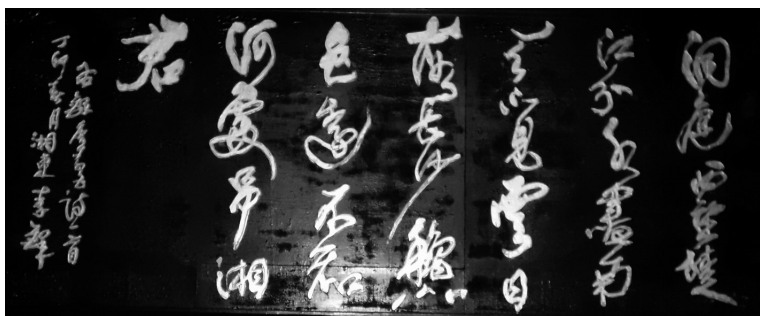 洞庭西望楚
江分水盡南
天不見雲日
落長沙龝
色遠不知
何處吊湘
君
右錄唐李白詩一首
丁卯春月湘東李鐸